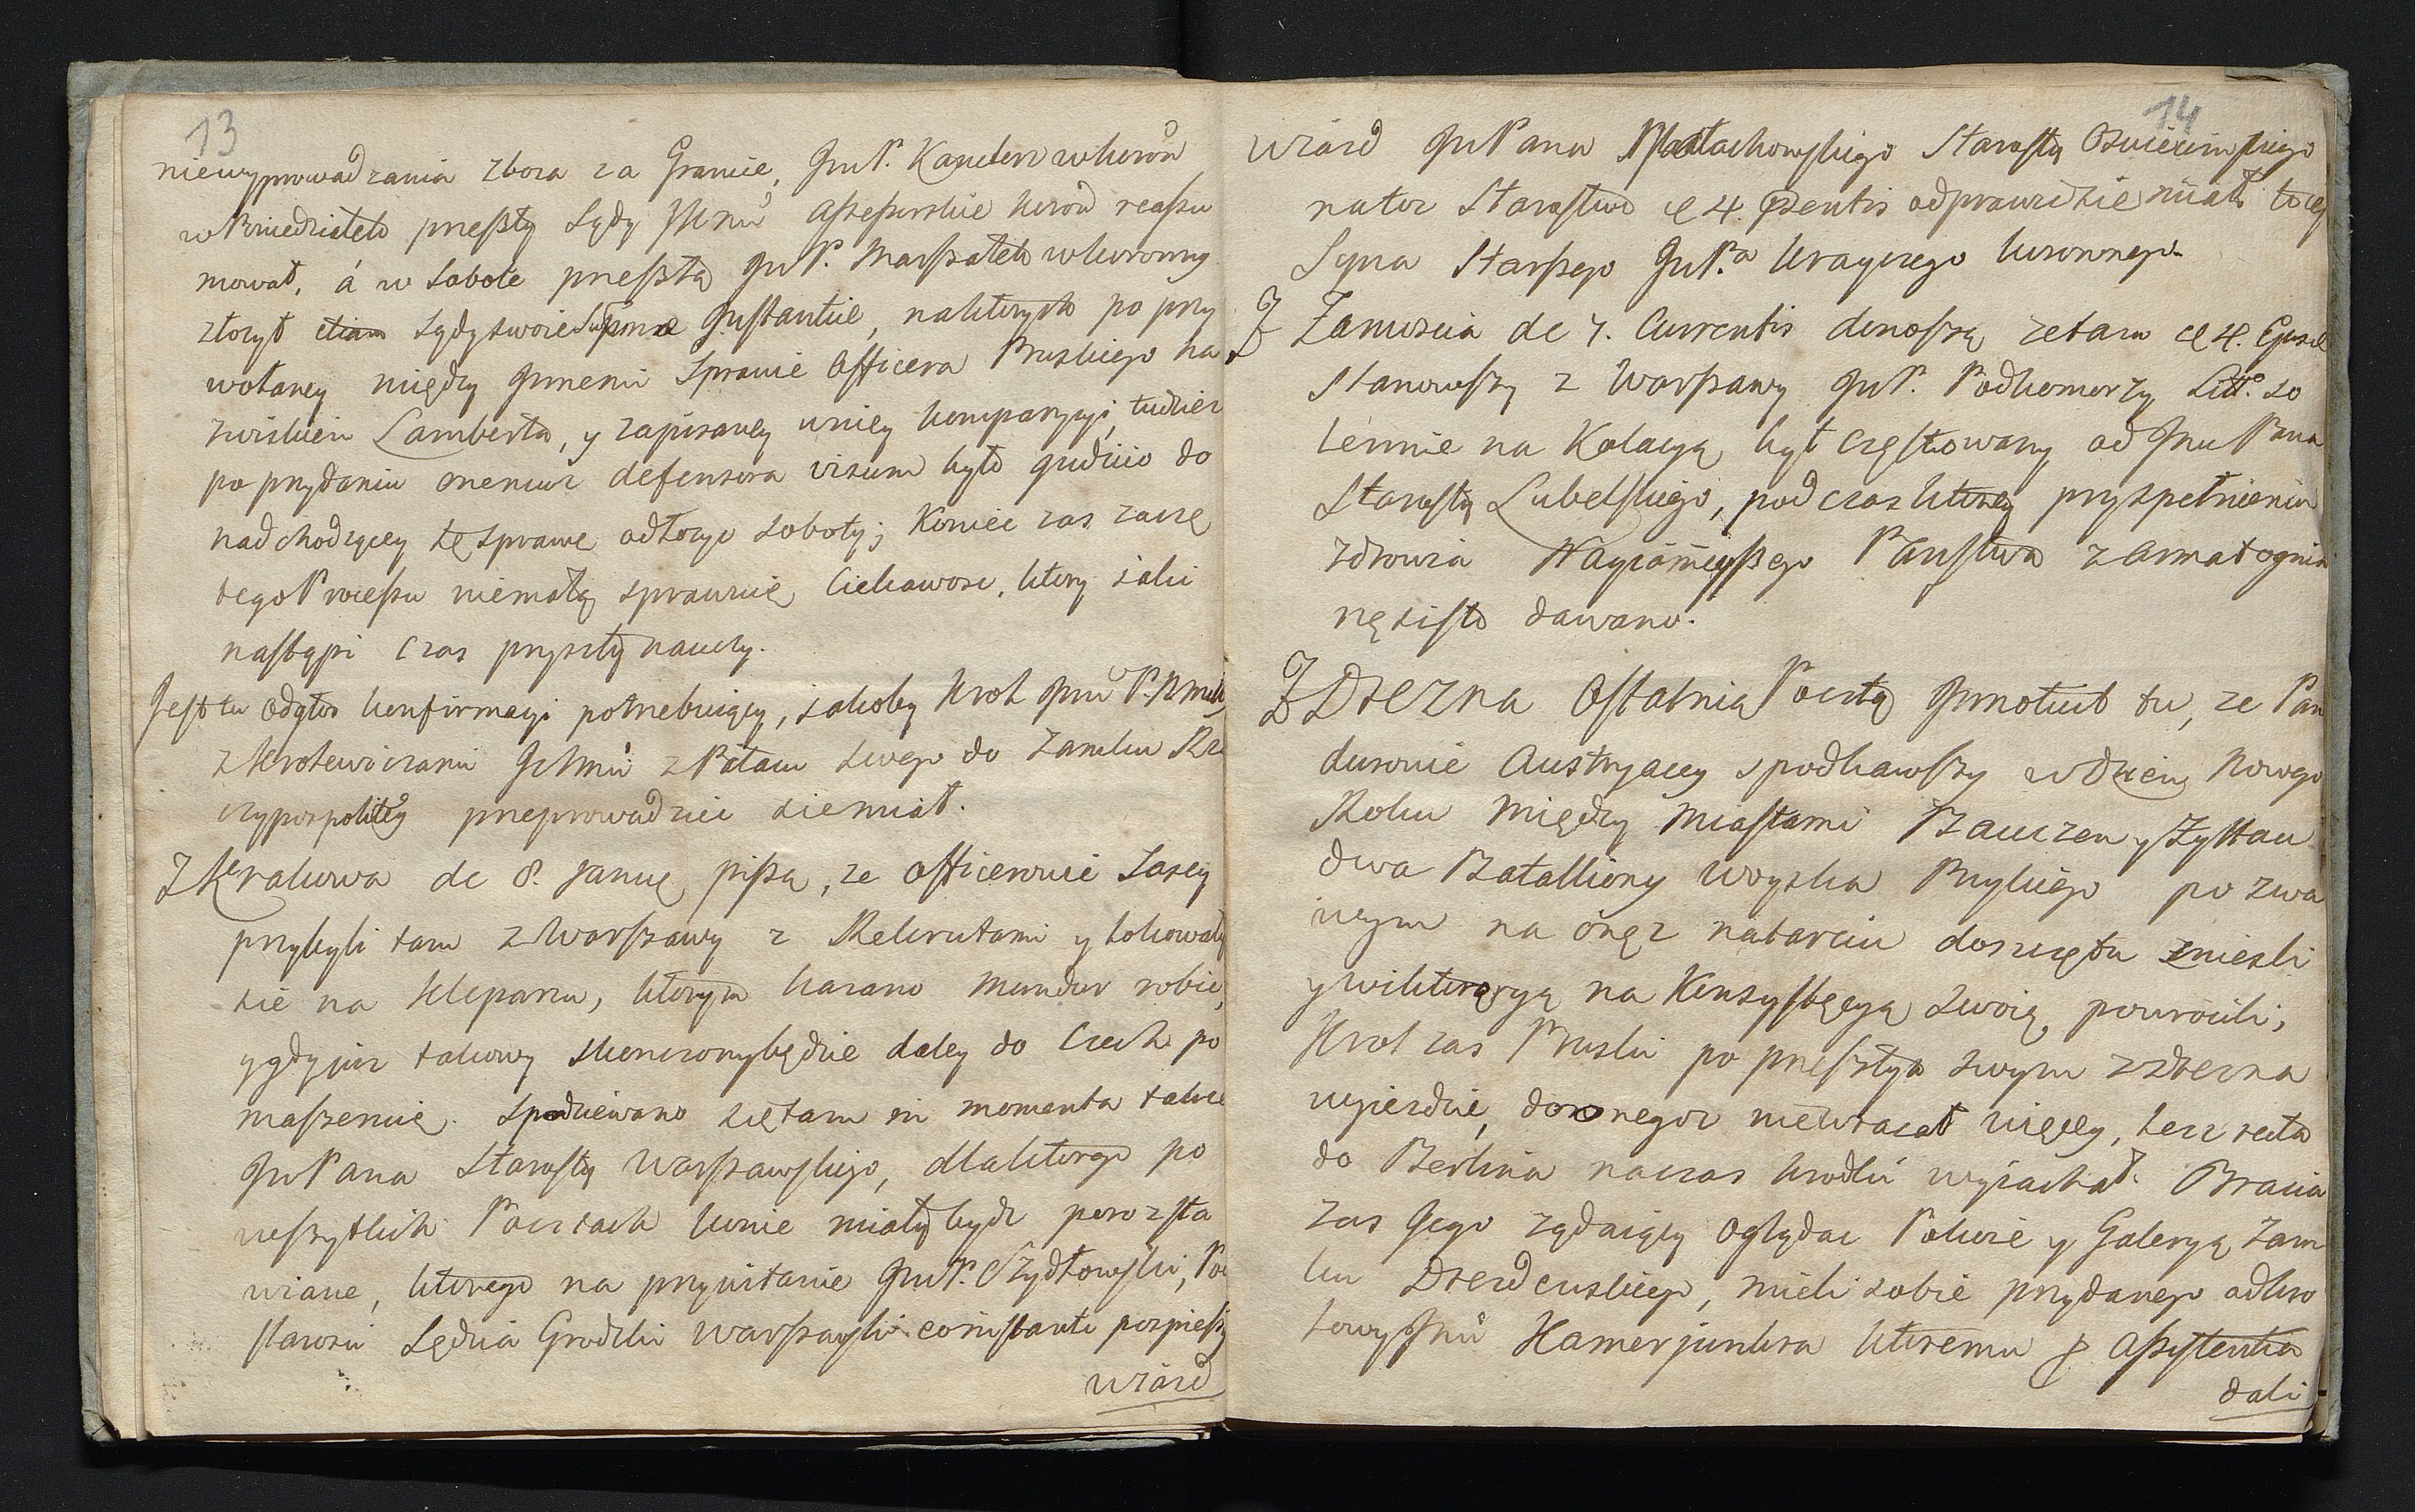 13
niewyprowadzania zboza za Granicę, JmP. Kanclerz wkoroñ
wPoniedziałek preszły Sądy JKMĉi Assessorskie koroñ reassu
mował, á w Sobotę preszłą JmP. Marszałek wkoronny
złozył etiam Sądy swoie Supremæ Instantiæ, naktorych po przy
wołaney między innemi Sprawie Officera Pruskiego na
zwiskiem Lamberta, y zapisaney wniey kompanyi, tudziesz
po przydaniu onemuz defensora visum było iudicio do
nadchodzącey tę sprawę odłozyc soboty; Koniec zas zaczę
tego Processu niemałą sprawuię Ciekawosc, ktory iaki
nastąpi czas przyszły nauczy.
Jest tu Odgłos konfirmacyi potrzebuiący, jakoby Krol Jmć P.
z Krolewicami Ichmć z Pałacu swego do Zamku Rze
czypospolitey przeprowadzic sie miał.
Z Krakowa de 8. Januę piszą, ze Officerowie Sascy
przybyli tam z Warszawy z Rekrutami y lokowały
sie na Kleparzu, ktorym kazano mundur robic,
y gdy iuz takowy skonczony będzie daley do Czech po
maszeruią. Spodziewano się tam in momenta takze
JmPana Starosty Warszawskiego, dla ktorego po
wszytkich Pocztach konie miały bydz porozsta
wiane, ktorego na przywitanie JmP. Szydłowski, Po
starosci Sędzia Grodzki Warszawski constanti pospieszy
wiazd
14
wiazd JmPana Małachowskiego Starosty Oswiecimskiego
na toz Starostwo d 4. præsentis odprawic sie miał to iest
Syna Starszego JmP.ª Krayczego koronnego.
Z Zamoscia de 7. Currentis donoszą ze tam d 4. Ejusd
Stanowszy z Warszawy JmP. Podkomorzy Litt. so
lennie na Kolacyą był częstowany od Jmć Pana
Starosty Lubelskiego, pod czas ktorey przy spełnieniu
zdrowia Nayiasnieyszego Panstwa z Armat ognia
rzęsisto dawano.
Z Drezna Ostatnią Pocztą Innotuit tu, ze Pan
durowie Austryaccy spotkawszy w dzien Nowego
Roku między Miastami Bauczen y Zyttau
dwa Batalliony Woyska Pruskiego po zwa
wym na onęz natarciu do szczętu zniesli
y wiktoryą na Konsystęcyą swoię powrocili;
Krol zas Pruski po preszłym swym z Drezna
wyiezdzie, do onegoz niewracał więcey, lecz recta
do Berlina na czas krotki wyiachał. Bracia
zas Jego ządaiący oglądac Pokoie y Galeryą Zam
ku Drezdenskiego, mieli sobie przydanego od kro
lowy Jmć Kamerjunkra ktoremu p Assystentia
dali